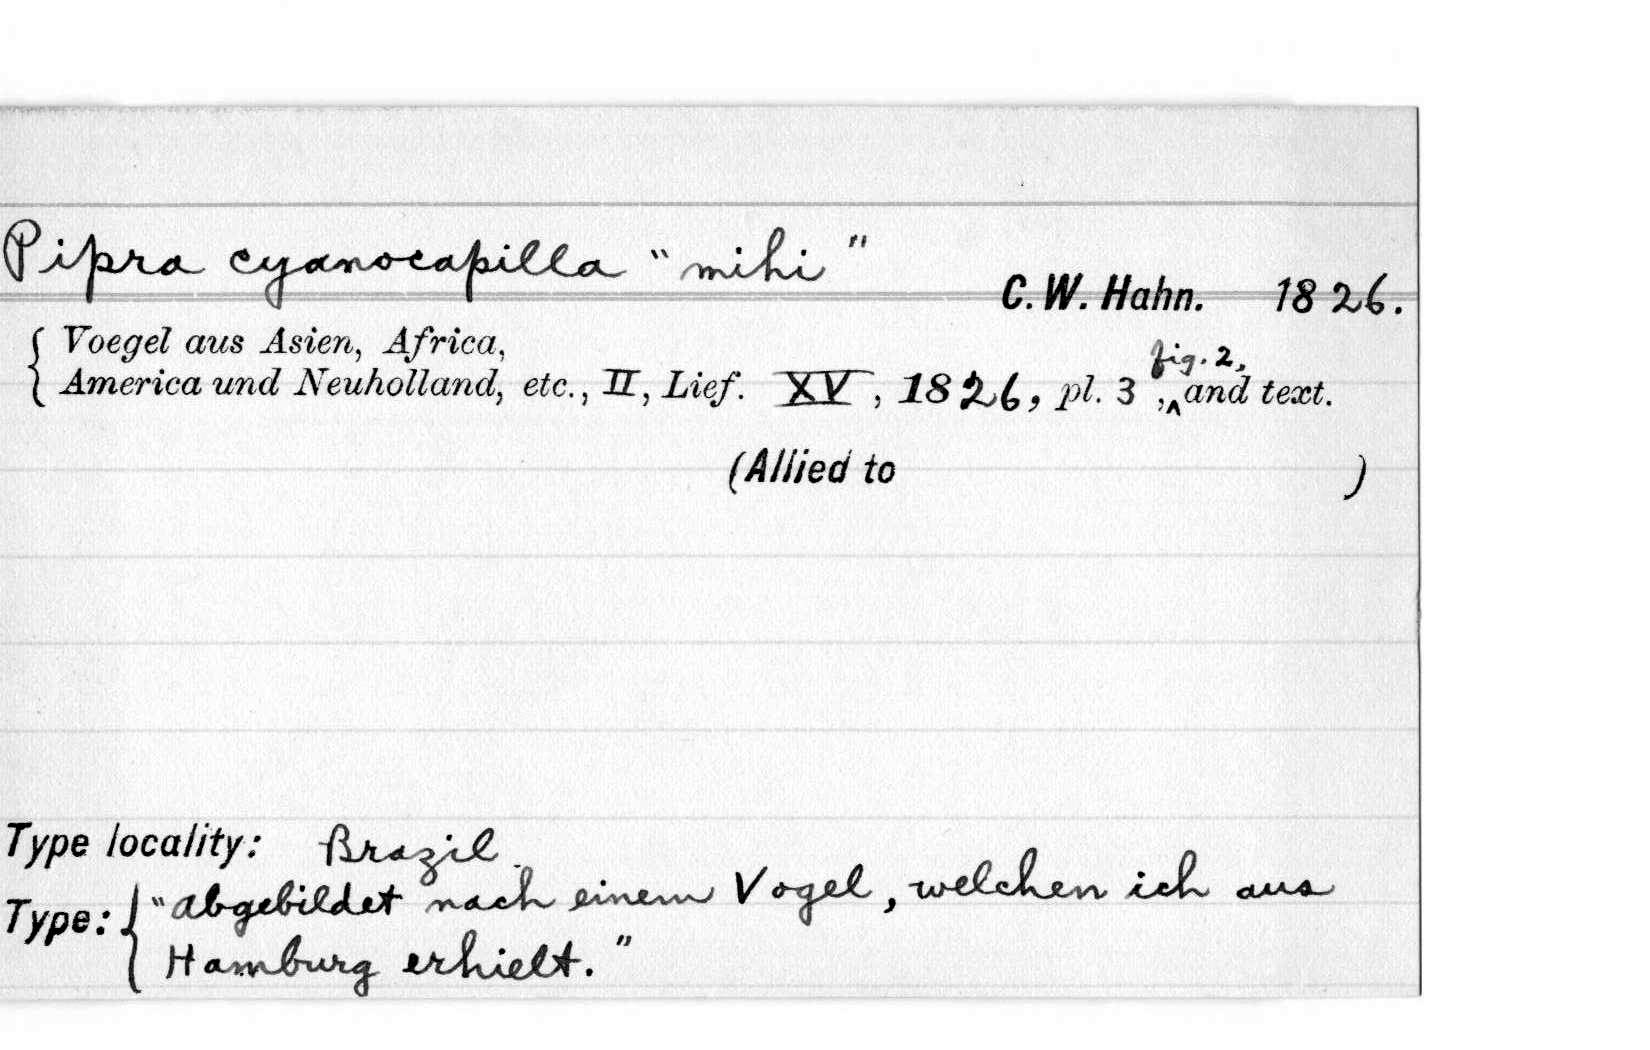 Pipra cyanocapilla "mihi"
C. W. Hahn. 1826.
Voegel aus Asien, Africa,
America und Neuholland, etc., II, Lief. XV, 1826, pl. 3, fig. 2, and text.
(Allied to )
Type locality: Brazil.
Type: "Abgebildet nach einem Vogel, welchen ich aus
Hamburg erhielt."